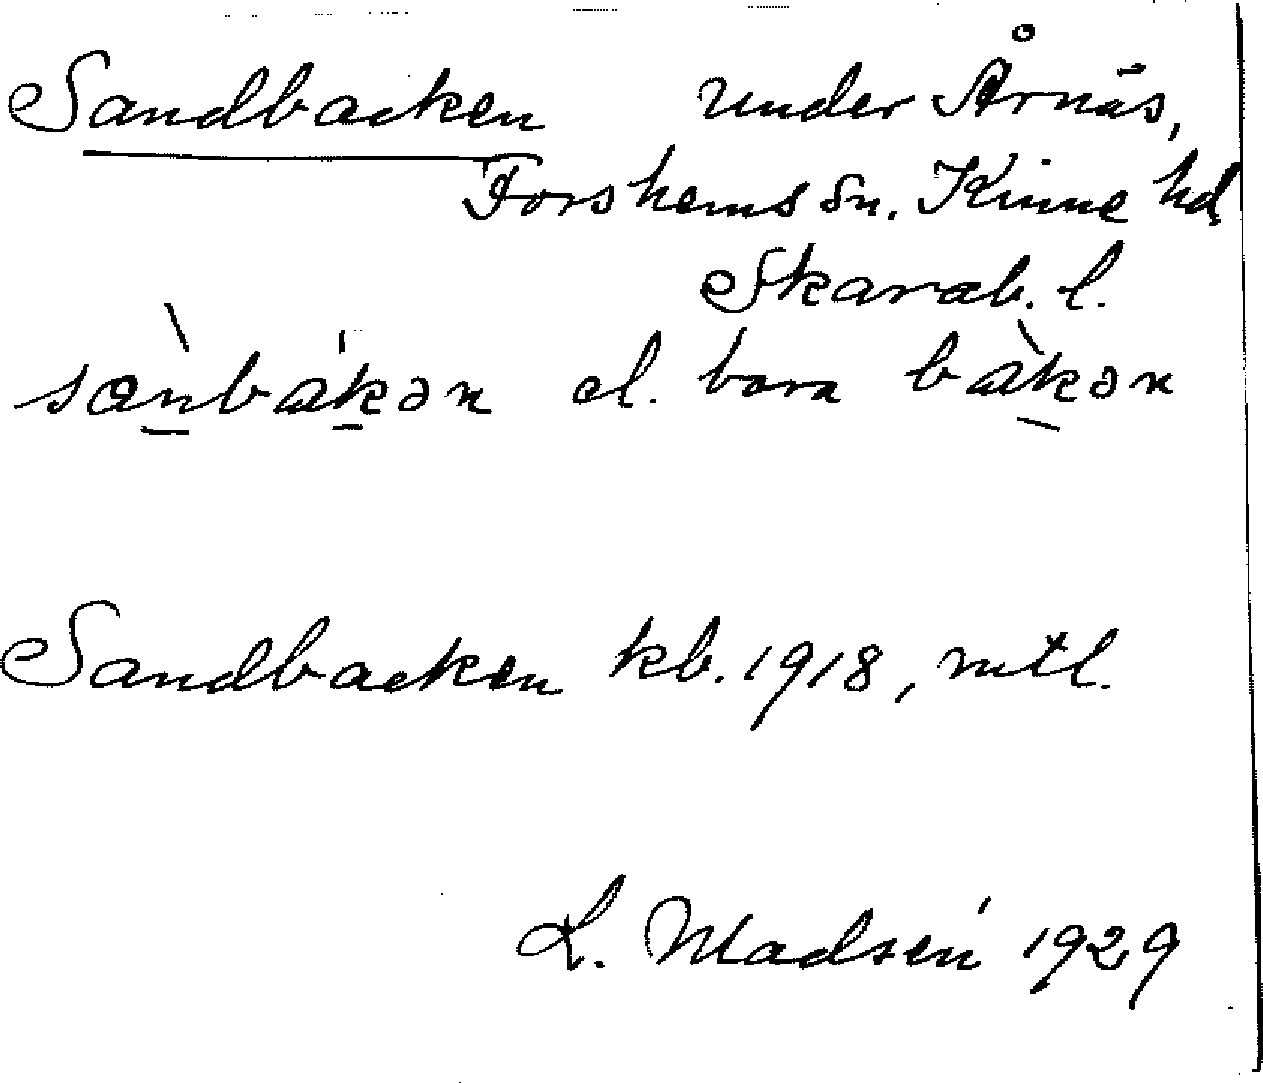 Sandbacken under Årnäs,
Forshems sn. Kinne hd
Skarab. l.
sànbákən el. bara bàkən
Sandbacken kb. 1918, mtl.
L. Madsén 1929